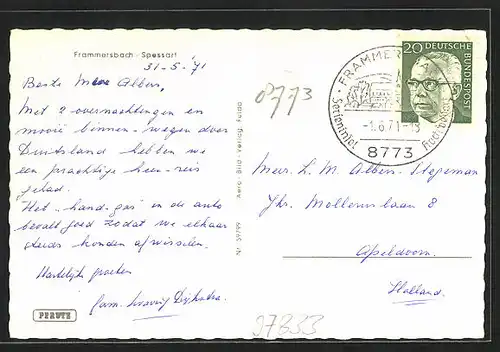 Frammersbach - Spessart
31-5-'71
Beste Mevr Albers,
Met 2 overnachtingen en
mooie binnen-wegen door
Duitsland hebben we
een prachtige heen-reis
gehad.
Het "hand-gas" in de auto
bevalt goed zodat we elkaar
steeds konden afwisselen.
Hartelijke groeten
fam.
PERUTZ
Nr. 59799 Aero-Bild-Verlag, Fulda
8773
FRAMMERSBACH
-1.6.71-15
8773
20 DEUTSCHE BUNDESPOST
Mevr. L. M. Albers-Stegeman
Jhr. Molleruslaan 8
Apeldoorn
Holland.
97833